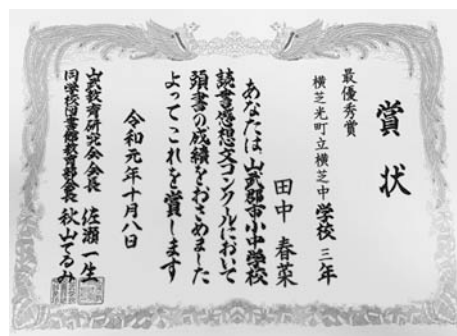 賞状
最優秀賞
横芝光町立横芝中学校 三年
田中 春菜
あなたは、山武郡市小中学校
読書感想文コンクールにおいて
頭書の成績をおさめました
よってこれを賞します
令和元年十月八日
山武教育研究会会長 佐瀬一生
同学校図書館教育部会長 秋山てるみ